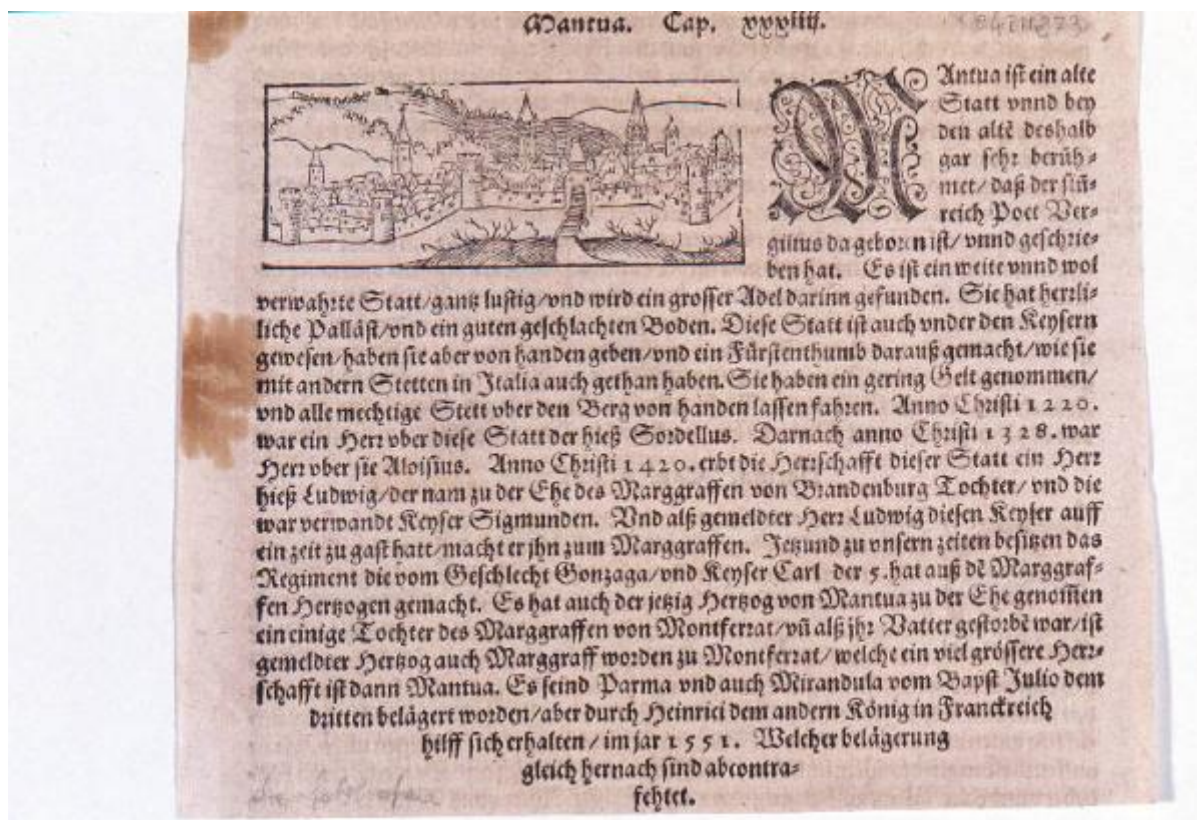 Mantua. Cap. xxxiiij.
MAntua ist ein alte
Statt vnnd bey
den altē deshalb
gar sehr berüh⸗
met/ daß der siñ⸗
reich Poet Ver⸗
gilius da geboren ist/ vnnd geschrie⸗
ben hat. Es ist ein weite vnnd wol
verwahrte Statt/ gantz lustig/ vnd wird ein grosser Adel darinn gefunden. Sie hat herrli⸗
liche Palläst/ vnd ein guten geschlachten Boden. Diese Statt ist auch vnder den Keysern
gewesen/ haben sie aber von handen geben/ vnd ein Fürstenthumb darauß gemacht/ wie sie
mit andern Stetten in Italia auch gethan haben. Sie haben ein gering Gelt genommen/
vnd alle mechtige Stett vber den Berg von handen lassen fahren. Anno Christi 1220.
war ein Herr vber diese Statt der hieß Sordellus. Darnach anno Christi 1328. war
Herr vber sie Aloisius. Anno Christi 1420. erbt die Herrschafft dieser Statt ein Herr
hieß Ludwig/ der nam zu der Ehe des Marggraffen von Brandenburg Tochter/ vnd die
war verwandt Keyser Sigmunden. Vnd alß gemeldter Herr Ludwig diesen Keyser auff
ein zeit zu gast hatt/ macht er jhn zum Marggraffen. Jetzund zu vnsern zeiten besitzen das
Regiment die vom Geschlecht Gonzaga/ vnd Keyser Carl der 5. hat auß dē Marggraf⸗
fen Hertzogen gemacht. Es hat auch der jetzig Hertzog von Mantua zu der Ehe genom̃en
ein einige Tochter des Marggraffen von Montferrat/ vñ alß jhr Vatter gestorbē war/ ist
gemeldter Hertzog auch Marggraff worden zu Montferrat/ welche ein viel grössere Herr⸗
schafft ist dann Mantua. Es seind Parma vnd auch Mirandula vom Bapst Julio dem
dritten belägert worden/ aber durch Heinrici dem andern König in Franckreich
hilff sich erhalten/ im jar 1551. Welcher belägerung
gleich hernach sind abcontra⸗
fehtet.